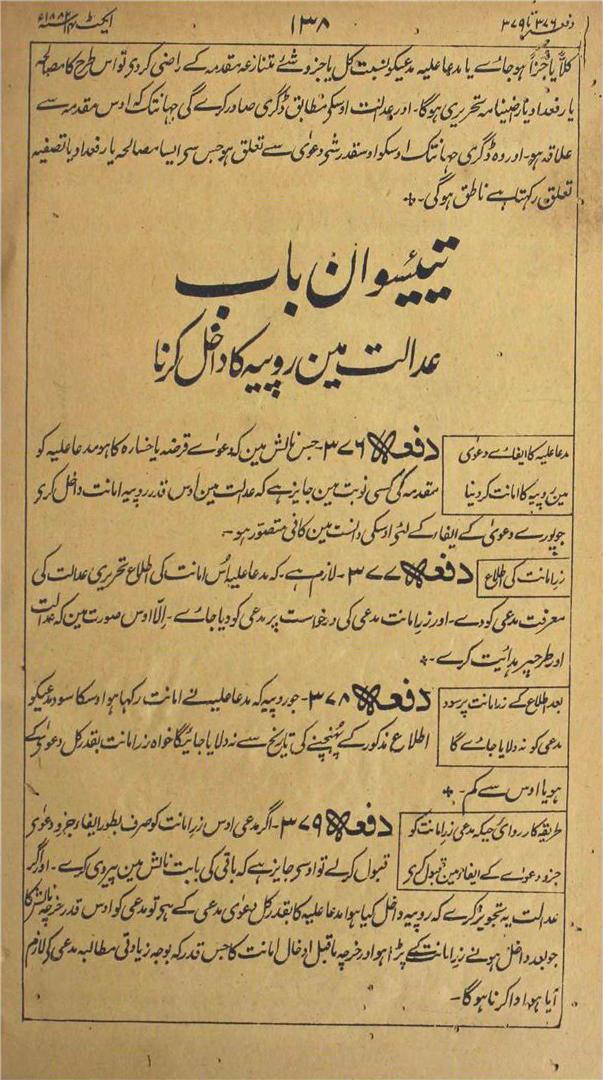 دفعہ ۳۷۶ تا ۳۷۹
۱۳۸
ایکٹ ۱۴ سنہ ۱۸۸۲ء
کلاً یا جزاً ہو جائے یا مدعاعلیہ مدعیکو بنسبت کل یا جزو شئے متنازعہ مقدمہ کے راضی کردی تو اس طرح کا مصالحہ
یا رفعداد یا رضینامہ تحریری ہوگا۔ اور عدالت اوسکی مطابق ڈگری صادر کرے گی جہانتک کہ اوس مقدمہ سے
علاقہ ہو۔ اور وہ ڈگری جہانتک اوسکو اوسقدر شی دعوی سے تعلق ہو جس سی ایسا مصالحہ یا رفعداد یا تصفیہ
تعلق رکھتا ہے ناطق ہوگی۔
تیئیسوان باب
عدالت مین روپیہ کا داخل کرنا
مدعاعلیہ کا ایفاے دعوی
مین روپیہ کا امانت کردینا
دفعہ ۳۷۶۔ جس نالش مین کہ دعواے قرضہ یا خسارہ کا ہو مدعاعلیہ کو
مقدمہ کی کسی نوبت مین جایز ہے کہ عدالت مین اوس قدر روپیہ امانت داخل کری
جو پورے دعوی کے ایفاء کے لئی اوسکی دانست مین کافی متصور ہو۔
زر امانت کی اطلاع
دفعہ ۳۷۷۔ لازم ہے کہ مدعاعلیہ اس امانت کی اطلاع تحریری عدالت کی
معرفت مدعی کو دے۔ اور زر امانت مدعی کی درخواست پر مدعی کو دیا جاے۔ الا اوس صورت مین کہ عدالت
اور طرحپر ہدائیت کرے۔
بعد اطلاع کے زر امانت پر سود
مدعی کو نہ دلایا جاے گا
دفعہ ۳۷۸۔ جو روپیہ کہ مدعاعلیہ نے امانت رکہا ہو اوسکا سود مدعیکو
اطلاع مذکور کے پہنچنے کی تاریخ سے نہ دلایا جائیگا خواہ زر امانت بقدر کل دعوی کے
ہو یا اوس سے کم۔
طریقہ کارروائی جبکہ مدعی زر امانت کو
جزو دعوے کے ایفاء مین قبول کری
دفعہ ۳۷۹۔ اگر مدعی اوس زر امانت کو صرف بطور ایفاء جزو دعوی
قبول کرلے تو اوسی جایز ہے کہ باقی کی بابت نالش مین پیروی کرے۔ اور اگر
عدالت یہ تجویز کرے کہ روپیہ داخل کیا ہوا مدعاعلیہ کا بقدر کل دعوی مدعی کے ہے تو مدعی کو اوس قدر خرچہ نالش کا
جو بعد داخل ہونے زر امانت کے پڑا ہو اور خرچہ ماقبل ادخال امانت کا جس قدر کہ بوجہ زیادتی مطالبہ مدعی کے لازم
آیا ہو ادا کرنا ہوگا۔